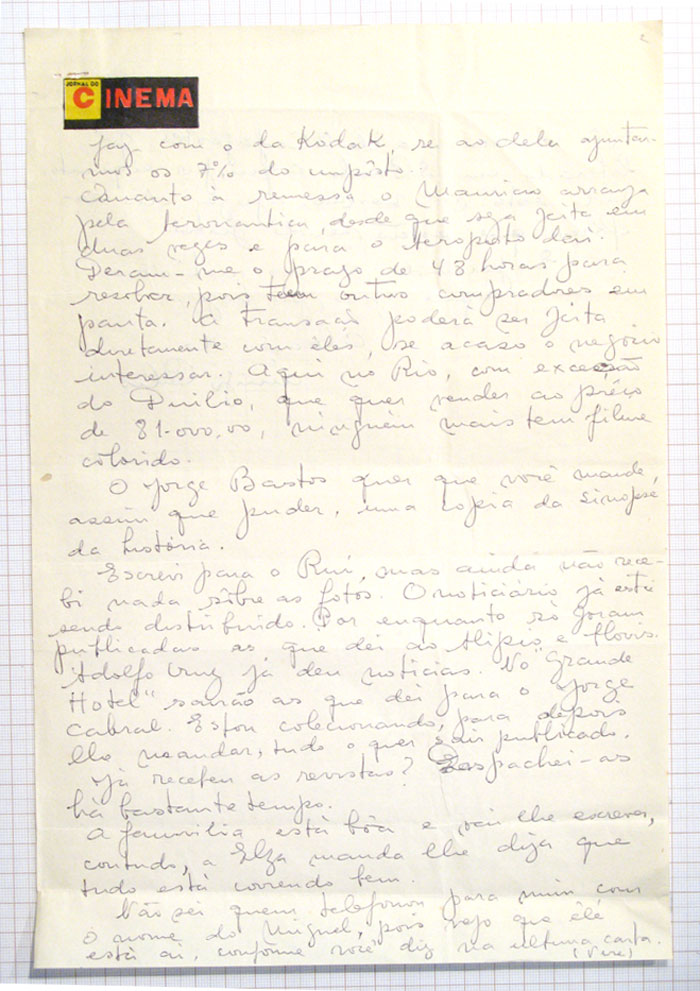 2
JORNAL DO
CINEMA
faz com o da Kodak, se ao dela ajuntar-
mos os 7% do impôsto.
Quanto à remessa o Mauricio arranja
pela Aeronautica, desde que seja feita em
duas vezes e para o Aeroporto daí.
Deram-me o prazo de 48 horas para
resolver, pois tem outros compradores em
pauta. A transação poderá ser feita
diretamente com êles, se acaso o negócio
interessar. Aqui no Rio, com exceção
do Duilio, que quer vender ao prêço
de 81-000,00, ninguém mais tem filme
colorido.
O Jorge Bastos quer que você mande,
assim que puder, uma copia da sinopse
da história.
Escrevi para o Rui, mas ainda não rece-
bi nada sôbre as fotos. O noticiário já está
sendo distribuido. Por enquanto só foram
publicadas as que dei ao Alipio e
Adolfo Cruz já deu noticias. No "Grande
Hotel" sairão as que dei para o Jorge
Cabral. Estou colecionando, para depois
lhe mandar, tudo o que sair publicado.
Já recebeu as revistas? Despachei-as
há bastante tempo.
A familia está bôa e vai lhe escrever,
contudo, a Elza manda lhe dizer que
tudo está correndo bem.
Não sei quem telefonou para mim com
o nome do Miguel, pois vejo que êle
está aí, conforme você diz na ultima carta.
(Vire)